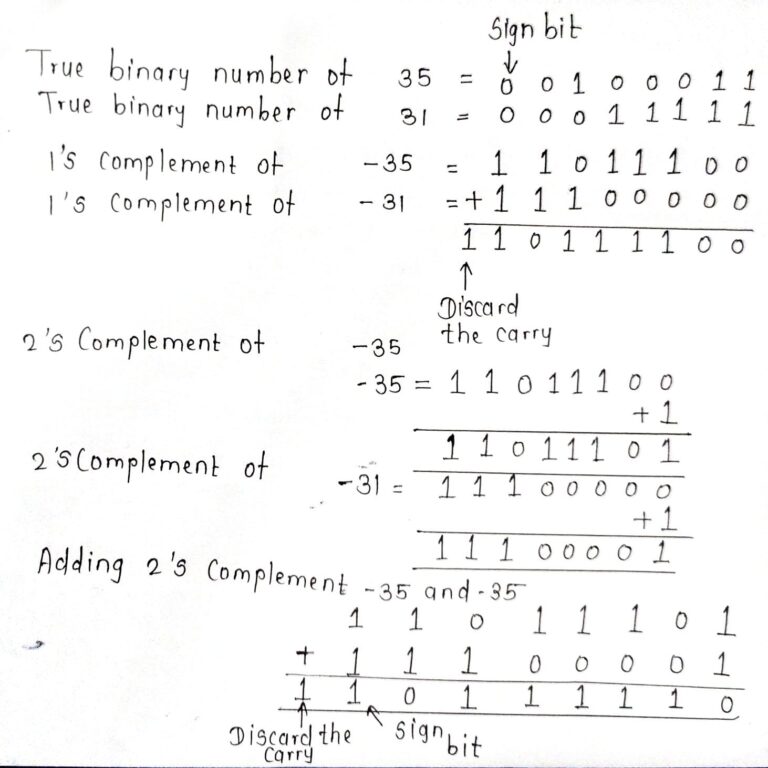 Sign bit
↓
True binary number of 35 = 0 0 1 0 0 0 1 1
True binary number of 31 = 0 0 0 1 1 1 1 1
1's complement of -35 = 1 1 0 1 1 1 0 0
1's complement of -31 = + 1 1 1 0 0 0 0 0
1 1 0 1 1 1 1 0 0
↑
Discard
the carry
2's Complement of -35
-35 = 1 1 0 1 1 1 0 0
+ 1
1 1 0 1 1 1 0 1
2's Complement of
-31 = 1 1 1 0 0 0 0 0
+1
1 1 1 0 0 0 0 1
Adding 2's Complement -35 and -35
1 1 0 1 1 1 0 1
+ 1 1 1 0 0 0 0 1
1 1 0 1 1 1 1 1 0
Discard the
carry
Sign bit